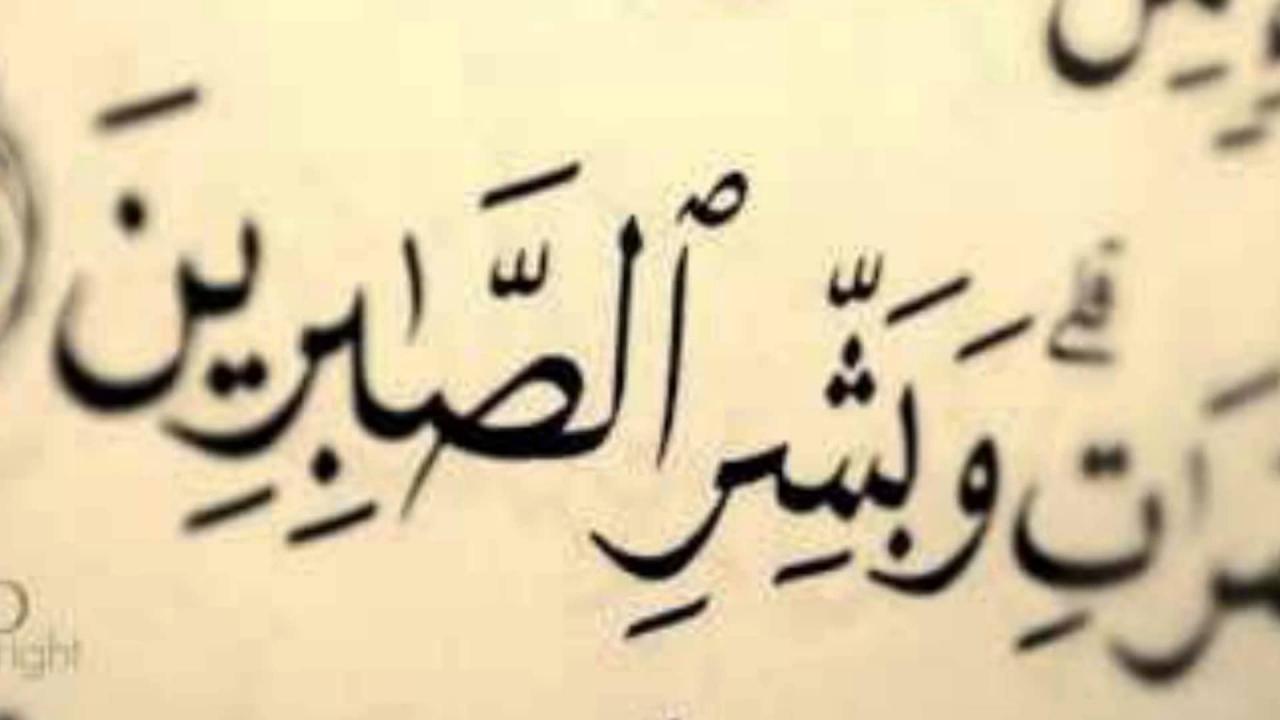 ـرَٰتِ ۗ وَبَشِّرِ ٱلصَّـٰبِرِينَ
right